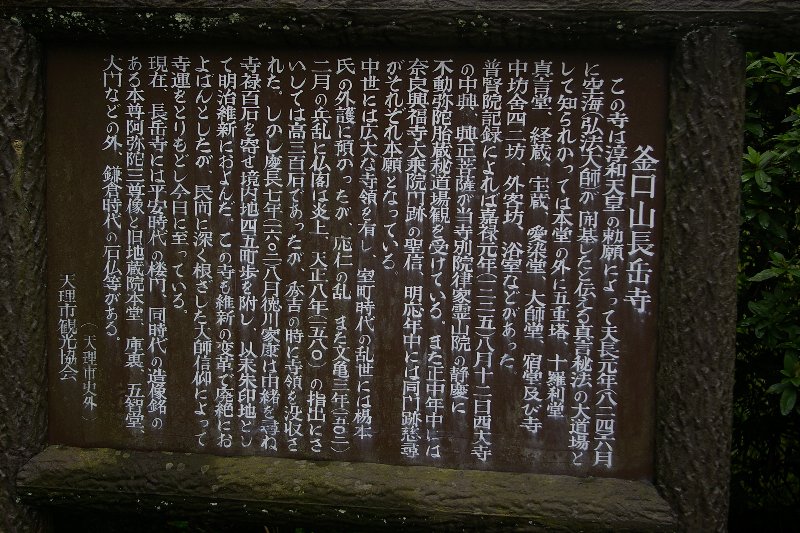 釜口山長岳寺
この寺は淳和天皇の勅願によって天長元年(八二四)六月
に空海(弘法大師)が開基したと伝える真言秘法の大道場と
して知られかつては本堂の外に五重塔、十羅刹堂
真言堂、経蔵、宝蔵、愛染堂、大師堂、宿堂及び寺
中坊舎四二坊、外客坊、浴室などがあった。
普賢院記録によれば嘉禄元年(一二二五)八月十二日西大寺
の中興、興正菩薩が当寺別院律家霊山院の静慶に
不動弥陀胎蔵秘道場観を受けている。また正中年中には
奈良興福寺大乗院門跡の聖信、明応年中には同門跡慈尋
がそれぞれ本願となっている。
中世には広大な寺領を有し、室町時代の乱世には楊本
氏の外護に預かったが、応仁の乱、また文亀三年(一五〇三)
二月の兵乱に仏閣は炎上、天正八年(一五八〇)の指出にさ
いしては高三百石であったが、永吉の時に寺領を没収さ
れた。しかし慶長七年(一六〇二)八月徳川家康は由緒を尋ね
寺禄百石を寄せ境内地四五町歩を附し、以来朱印地とし
て明治維新におよんだ。この寺も維新の変革で廃絶にお
よばんとしたが、民間に深く根ざした大師信仰によって
寺運をとりもどし今日に至っている。
現在、長岳寺には平安時代の楼門、同時代の造像銘の
ある本尊阿弥陀三尊像と旧地蔵院本堂、庫裏、五智堂、
大門などの外、鎌倉時代の石仏等がある。
(天理市史外)
天理市観光協会